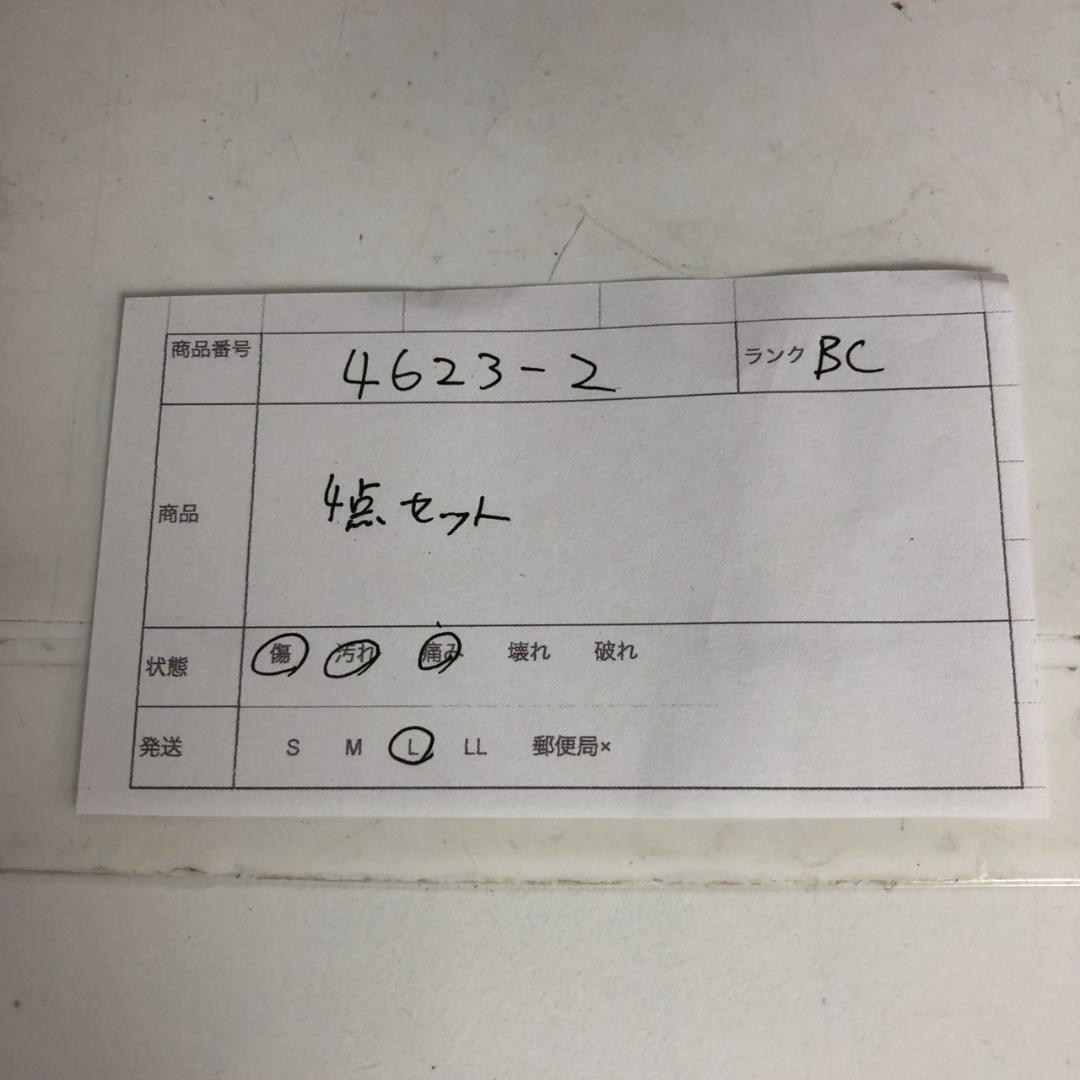 商品番号 4623-2 ランク BC
商品 4点セット
状態 傷 汚れ 痛み 壊れ 破れ
発送 S M L LL 郵便局×